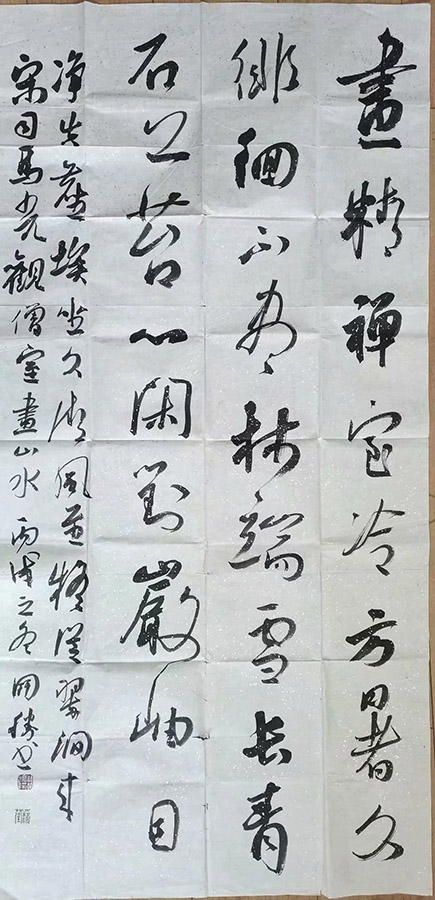 畫精禅室冷方暑久
徘徊不盡林端雪長青
石上苔心閑對巖岫目
净失塵埃坐久清風至疑從翠澗来
宋司馬光觀僧室畫山水 丙戌之冬 国勝书